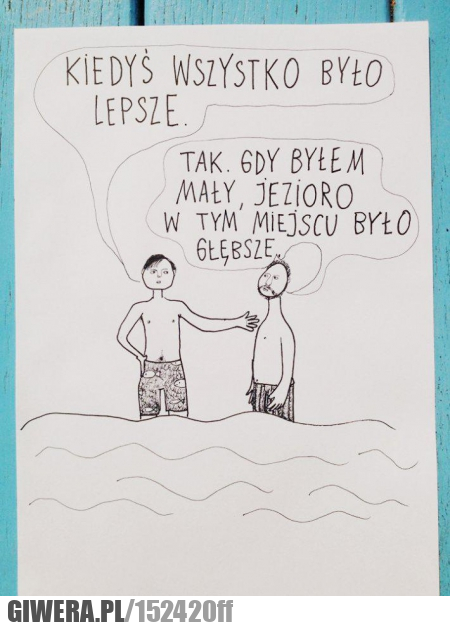 KIEDYŚ WSZYSTKO BYŁO
LEPSZE.
TAK. GDY BYŁEM
MAŁY, JEZIORO
W TYM MIEJSCU BYŁO
GŁĘBSZE.
GIWERA.PL/152420ff